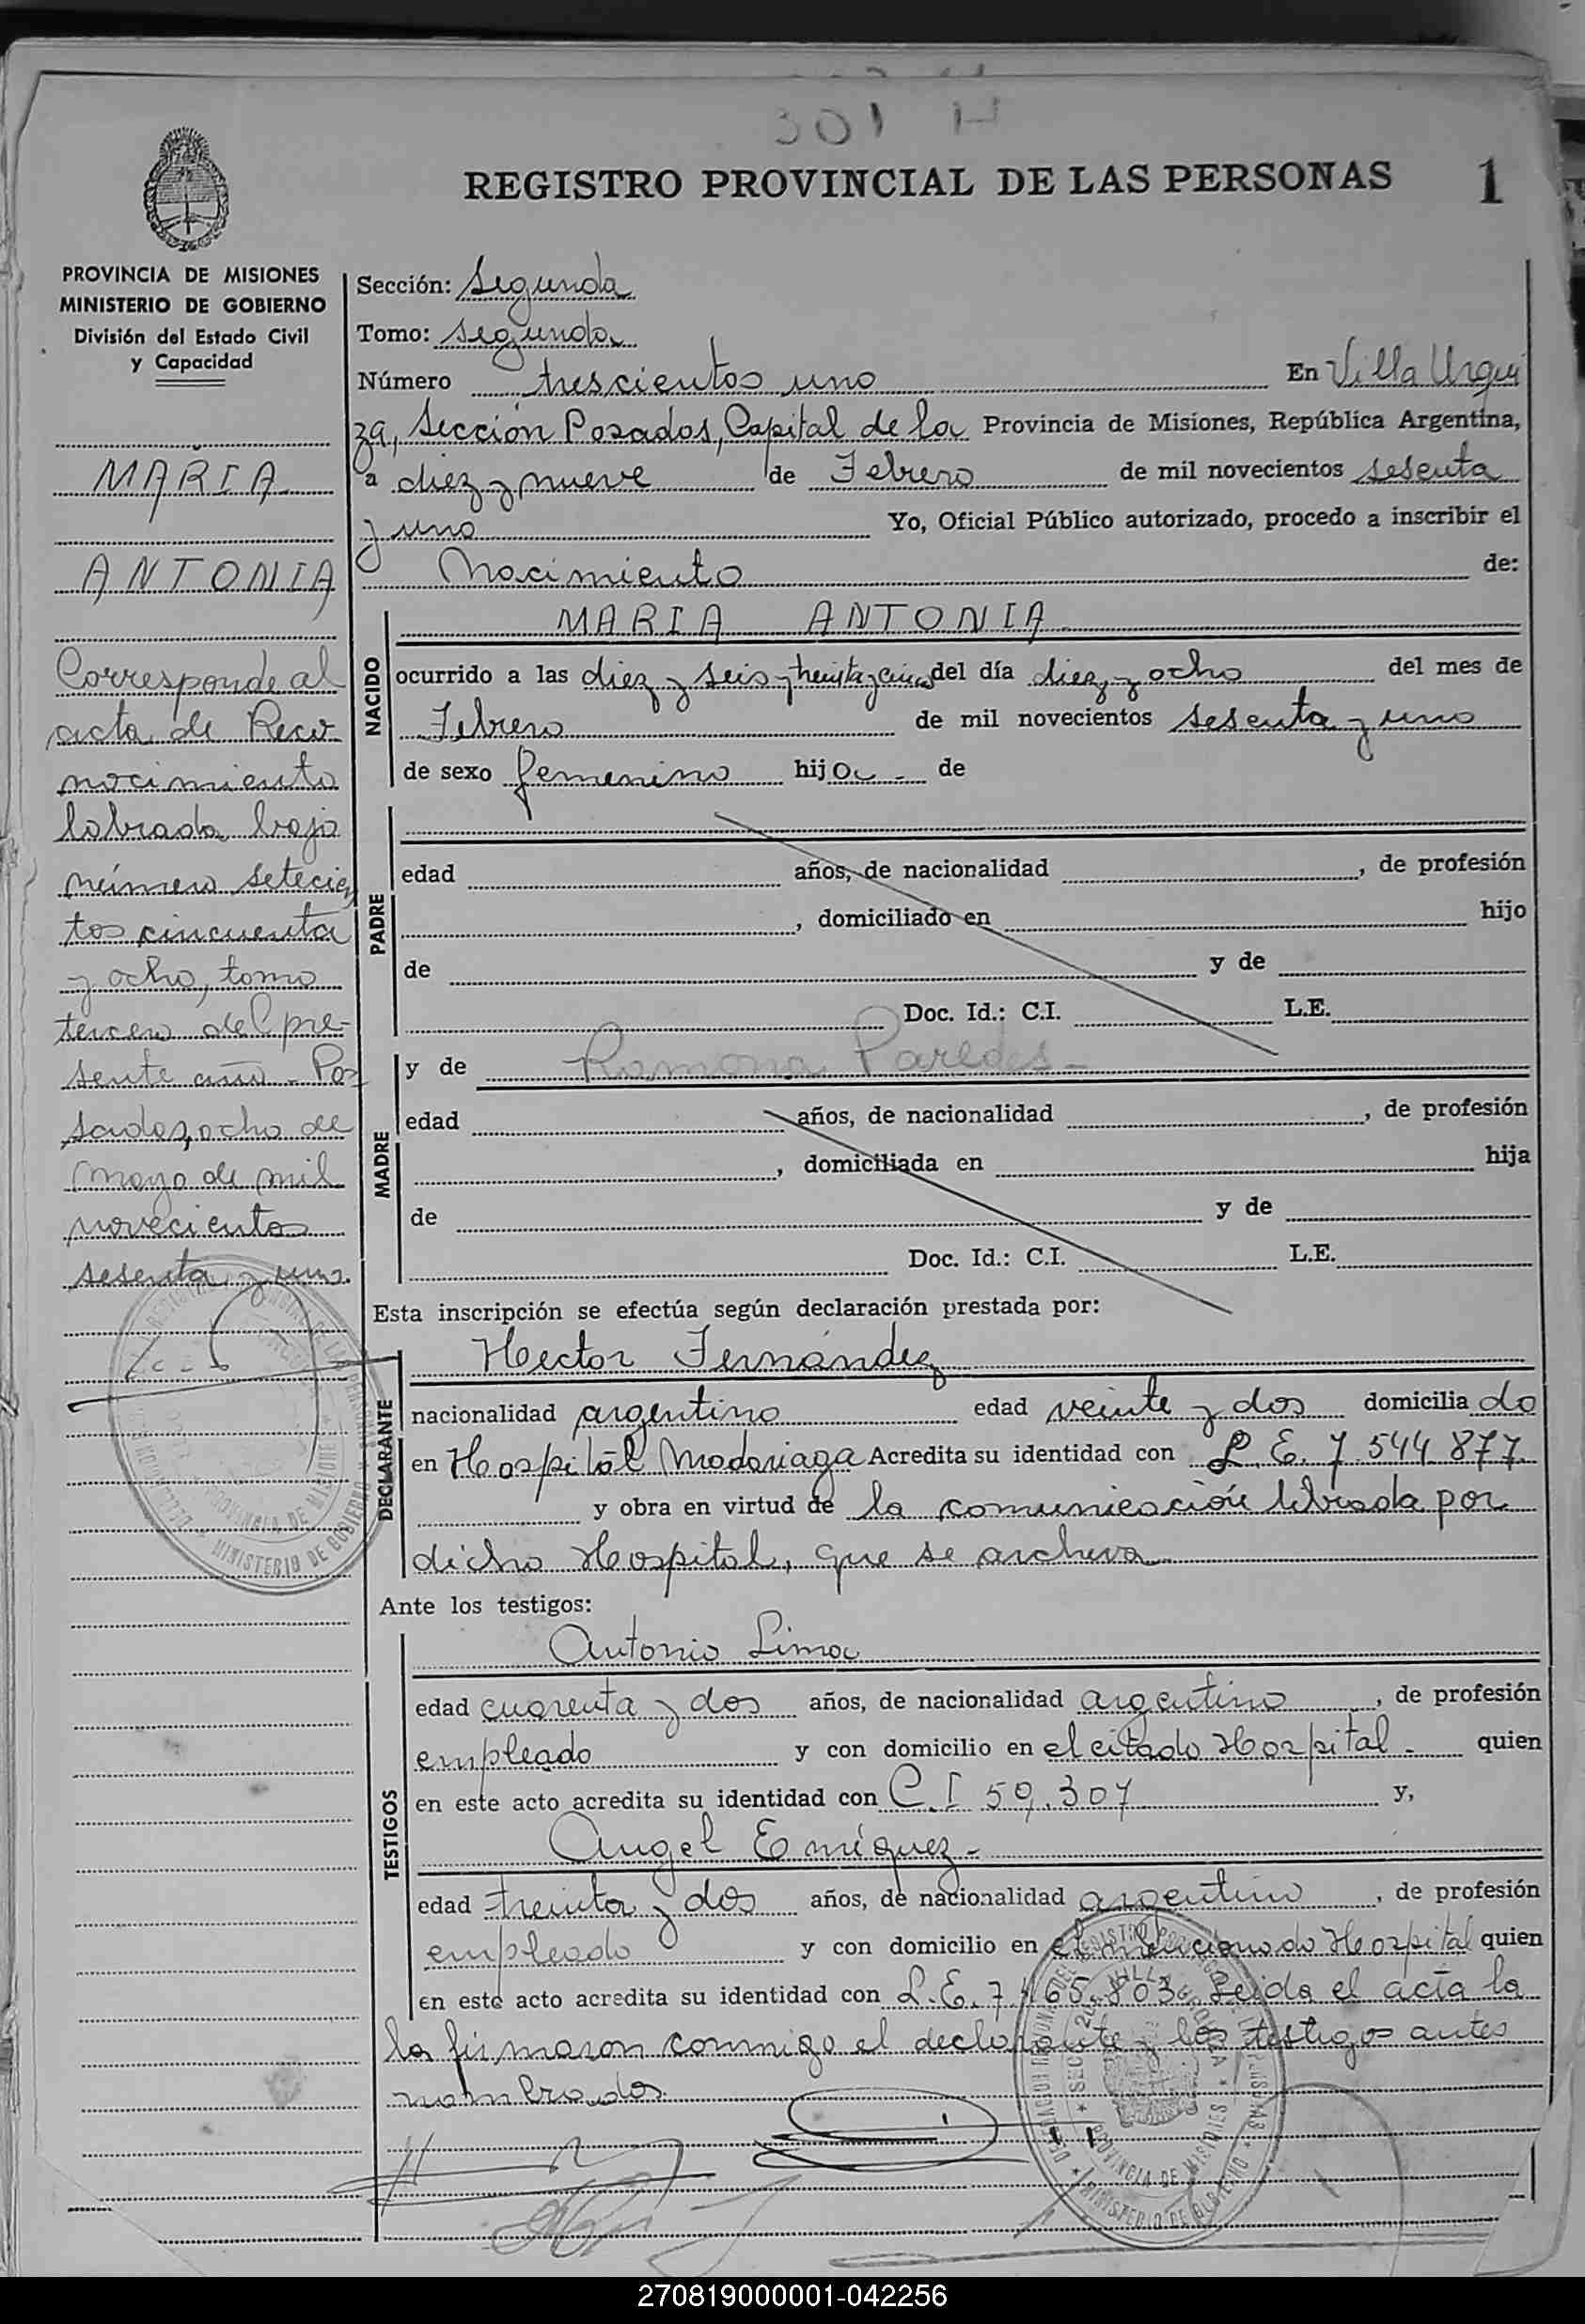 301 H
REGISTRO PROVINCIAL DE LAS PERSONAS 1
PROVINCIA DE MISIONES
MINISTERIO DE GOBIERNO
División del Estado Civil
y Capacidad
MARIA
ANTONIA
Corresponde al
acta de Reco-
nocimiento
labrada bajo
número setecien
tos cincuenta
y ocho, tomo
tercero del pre-
sente año - Po-
sadas, ocho de
mayo de mil
novecientos
sesenta y uno.
Sección: Segunda
Tomo: segundo
Número trescientos uno En Villa Urqui
za, Sección Posadas, Capital de la Provincia de Misiones, República Argentina,
a diez y nueve de Febrero de mil novecientos sesenta
y uno Yo, Oficial Público autorizado, procedo a inscribir el
Nacimiento de:
NACIDO
MARIA ANTONIA
ocurrido a las diez y seis y treinta y cinco del día diez y ocho del mes de
Febrero de mil novecientos sesenta y uno
de sexo femenino hija - de
PADRE
edad años, de nacionalidad , de profesión
, domiciliado en hijo
de y de
Doc. Id.: C.I. L.E.
MADRE
y de Ramona Paredes -
edad años, de nacionalidad , de profesión
, domiciliada en hija
de y de
Doc. Id.: C.I. L.E.
Esta inscripción se efectúa según declaración prestada por:
DECLARANTE
Hector Fernández
nacionalidad argentino edad veinte y dos domicilia do
en Hospital Madariaga Acredita su identidad con L.E. 7.544.877
y obra en virtud de la comunicación librada por
dicho Hospital, que se archiva
Ante los testigos:
TESTIGOS
Antonio Lima
edad cuarenta y dos años, de nacionalidad argentino , de profesión
empleado y con domicilio en el citado Hospital - quien
en este acto acredita su identidad con C.I 59.307 y,
Angel Emíquez -
edad treinta y dos años, de nacionalidad argentino , de profesión
empleado y con domicilio en el mencionado Hospital quien
en este acto acredita su identidad con L.E. 7.165.803. Leida el acta la
la firmaron conmigo el declarante y los testigos antes
nombrados.
MINISTERIO DE GOBIERNO
PROVINCIA DE MISIONES
270819000001-042256